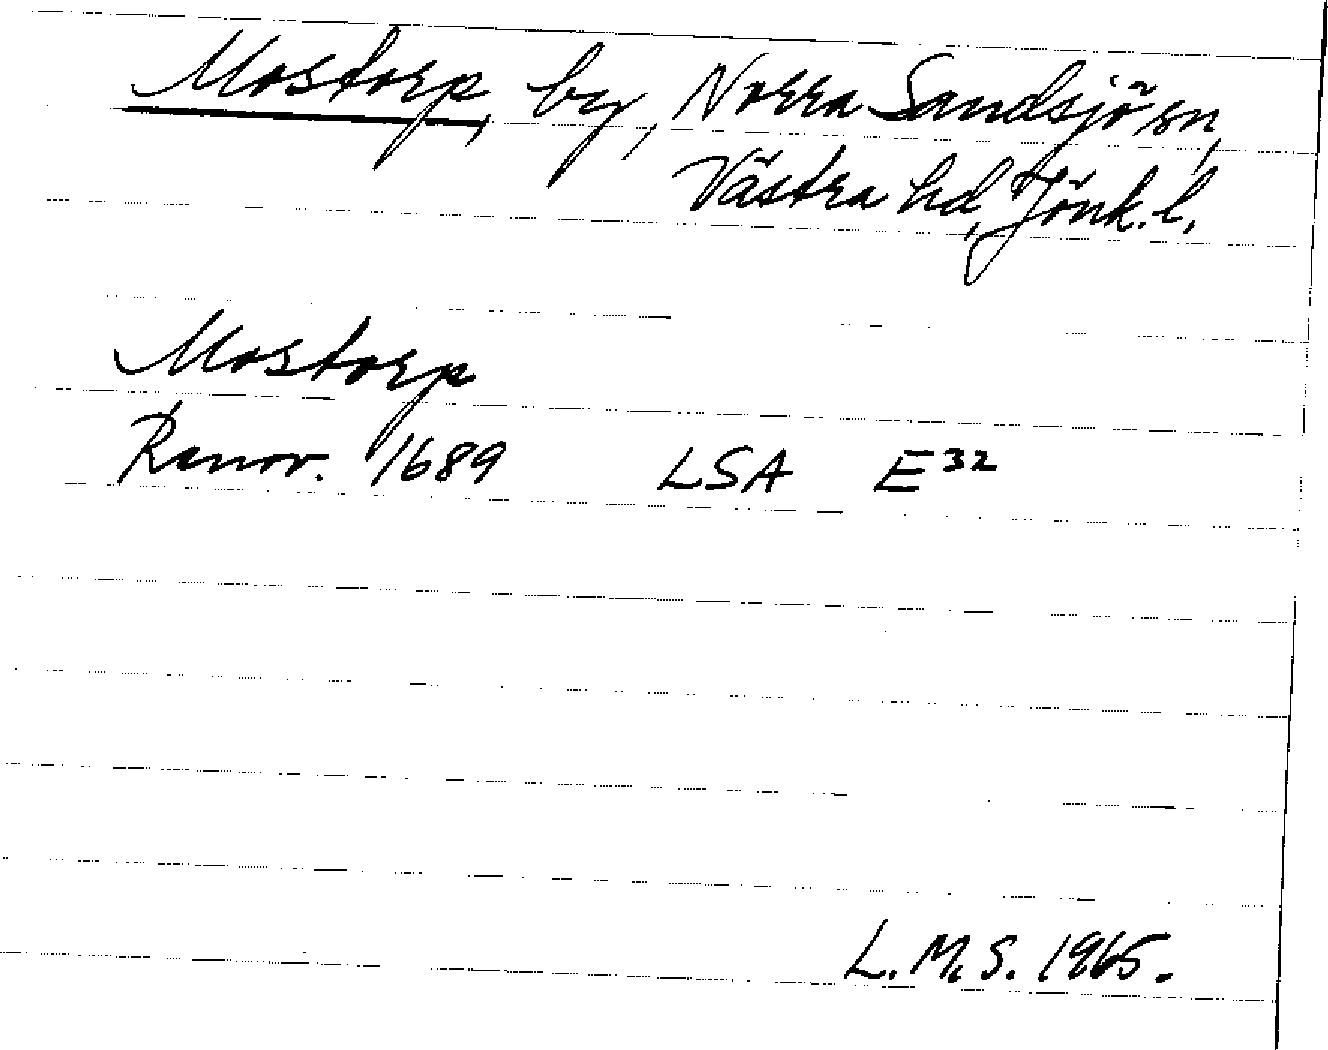 Mostorp, by, Norra Sandsjö sn,
Västra hd, Jönk. l.
Mostorp
Renov. 1689 LSA E32
L. M. S. 1965.